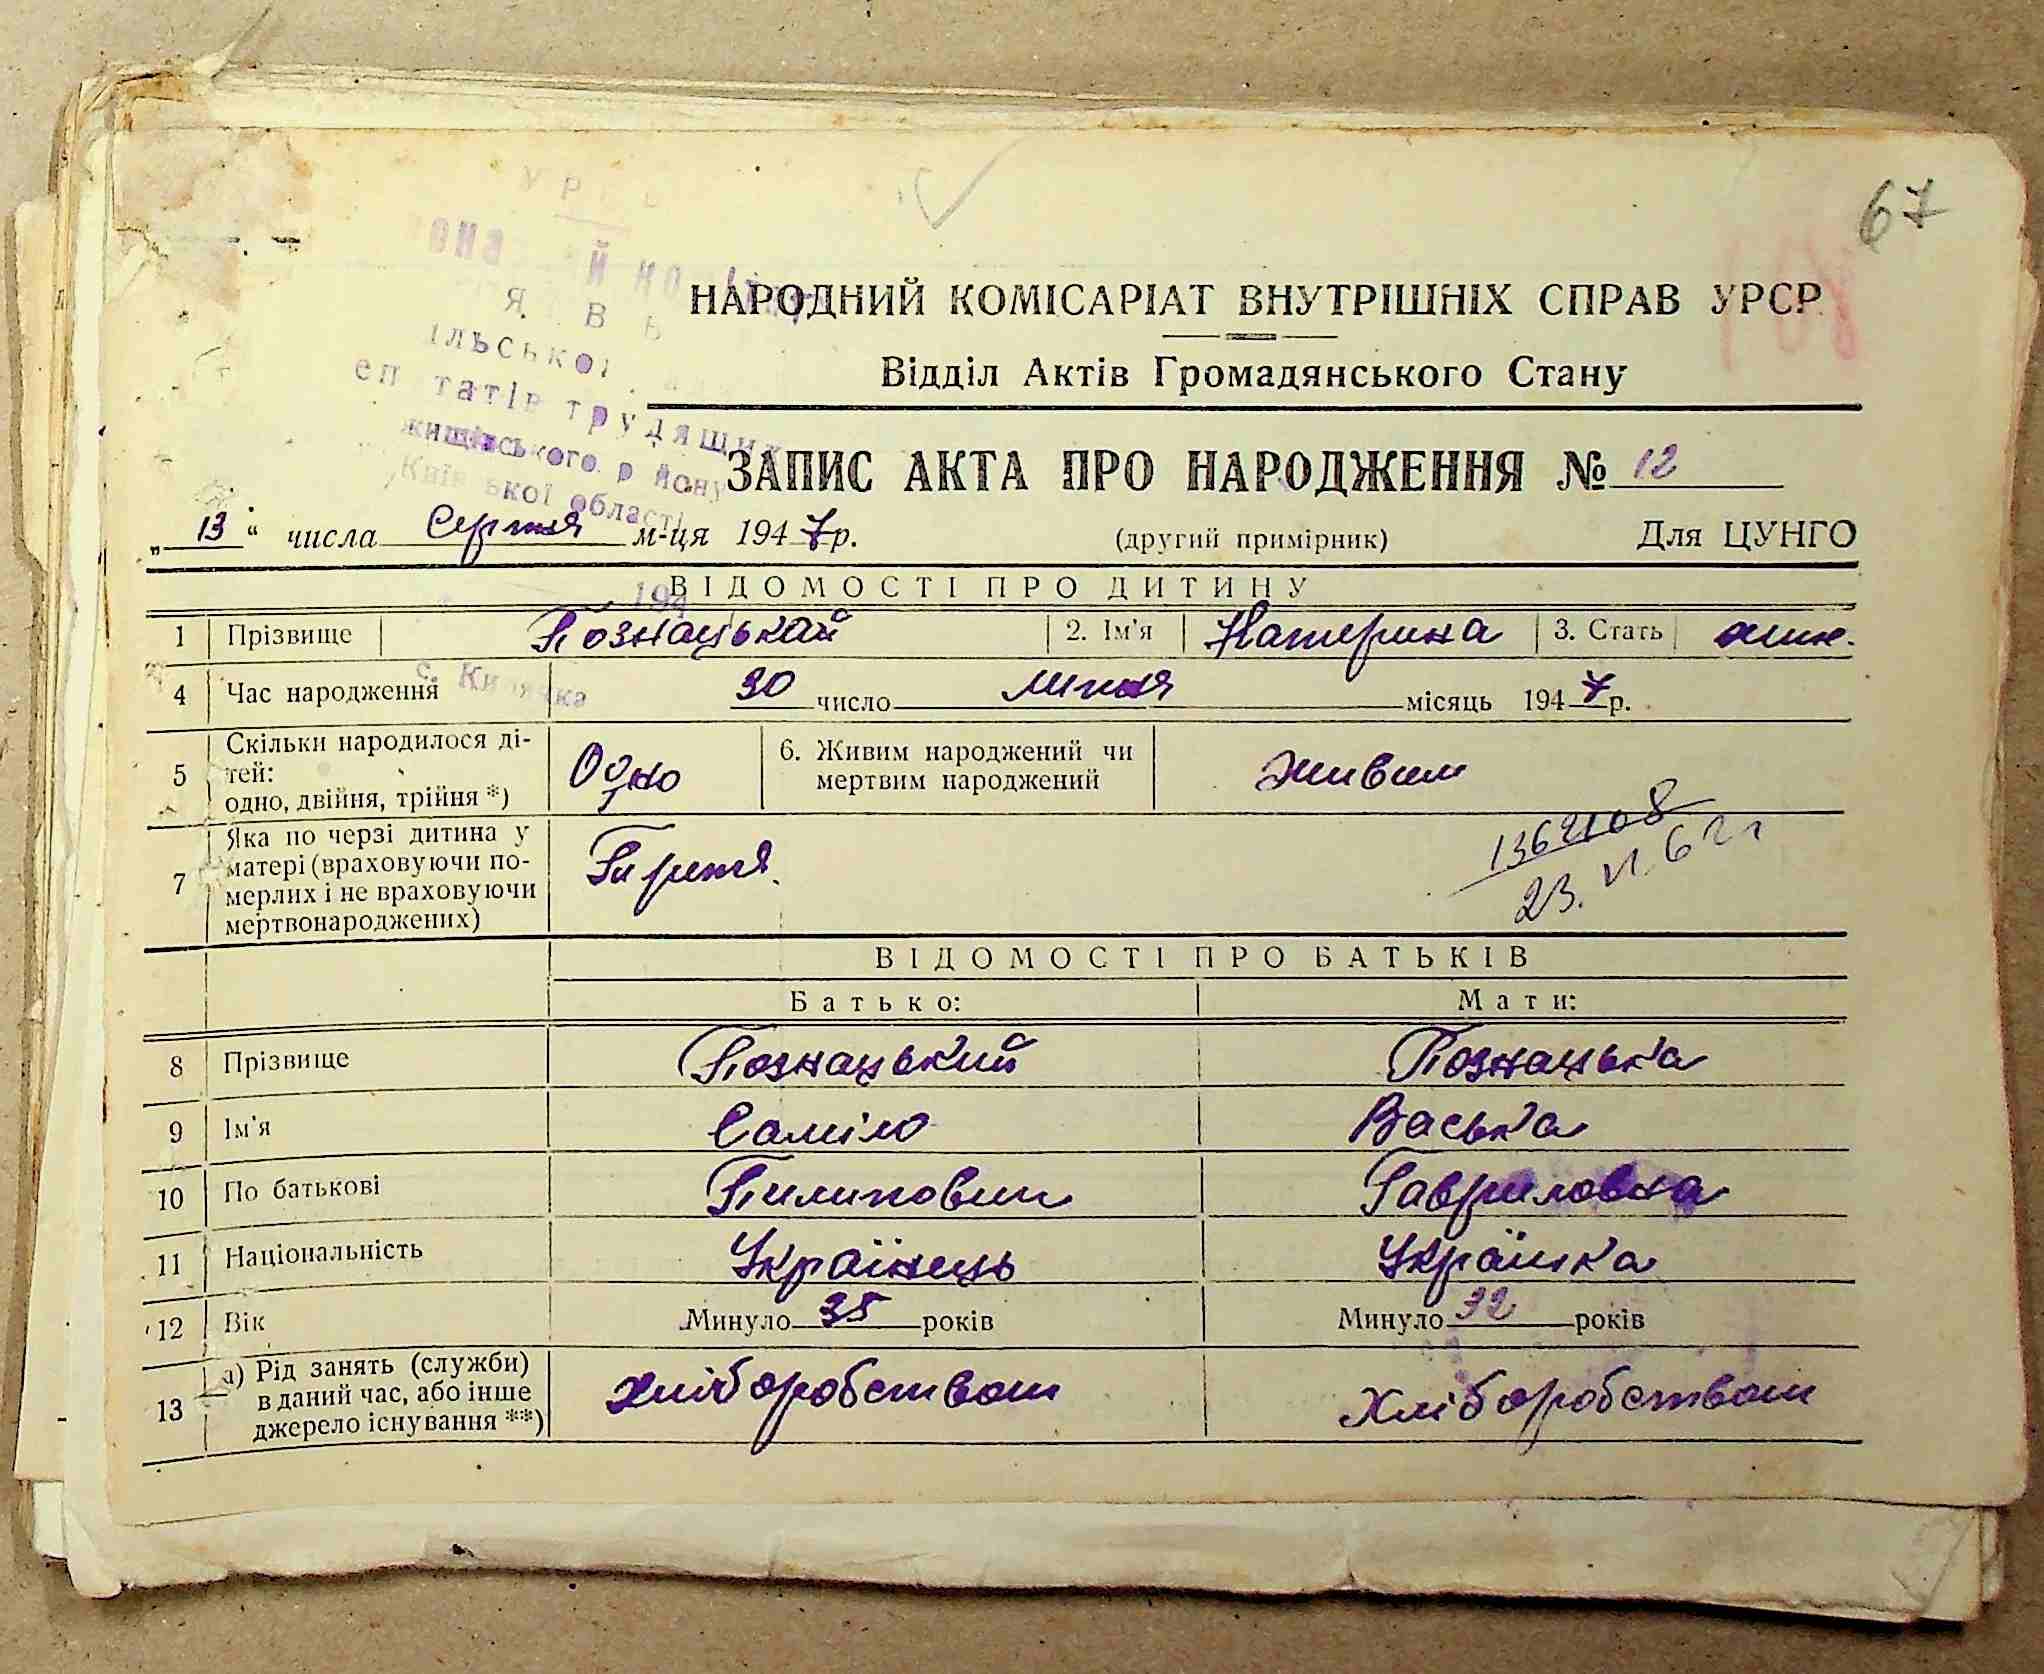 67
НАРОДНИЙ КОМІСАРІАТ ВНУТРІШНІХ СПРАВ УРСР
Відділ Актів Громадянського Стану
ЗАПИС АКТА ПРО НАРОДЖЕННЯ № 12
„13“ числа Серпня м-ця 1947 р. (другий примірник) Для ЦУНГО
ВІДОМОСТІ ПРО ДИТИНУ
1 Прізвище Познацькай 2. Ім'я Катерина 3. Стать жин.
с. Кип'ячка
4 Час народження 30 число липня місяць 1947 р.
5 Скільки народилося ді-
тей:
одно, двійня, трійня *) Одно 6. Живим народжений чи
мертвим народжений живим
7 Яка по черзі дитина у
матері (враховуючи по-
мерлих і не враховуючи
мертвонароджених)
1362108
23. VI. 62 г
ВІДОМОСТІ ПРО БАТЬКІВ
Батько: Мати:
8 Прізвище Познацький Познацька
9 Ім'я Саміло Васька
10 По батькові Пилипович Гавриловна
11 Національність Українець Українка
12 Вік Минуло 35 років Минуло 32 років
13 а) Рід занять (служби)
в даний час, або інше
джерело існування **) хліборобством Хліборобством